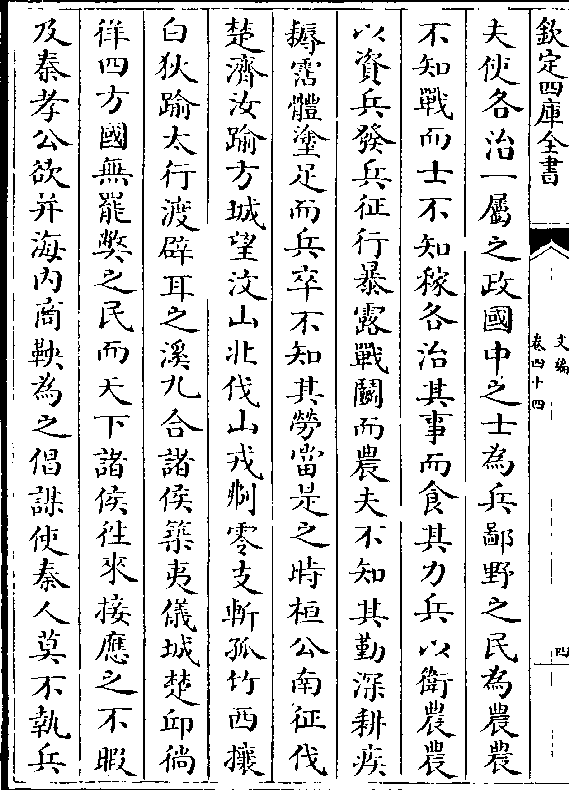 欽定四庫全書
文編
卷四十四
四
夫使各治一屬之政國中之士為兵鄙野之民為農農
不知戰而士不知稼各治其事而食其力兵以衛農農
以資兵發兵征行暴露戰鬭而農夫不知其勤深耕疾
耨霑體塗足而兵卒不知其勞當是之時桓公南征伐
楚濟汝踰方城望汶山北伐山戎刜零支斬孤竹西攘
白狄踰太行渡辟耳之溪九合諸侯築夷儀城楚邱徜
徉四方國無罷弊之民而天下諸侯徃來接應之不暇
及秦孝公欲并海内商鞅為之倡謀使秦人莫不執兵